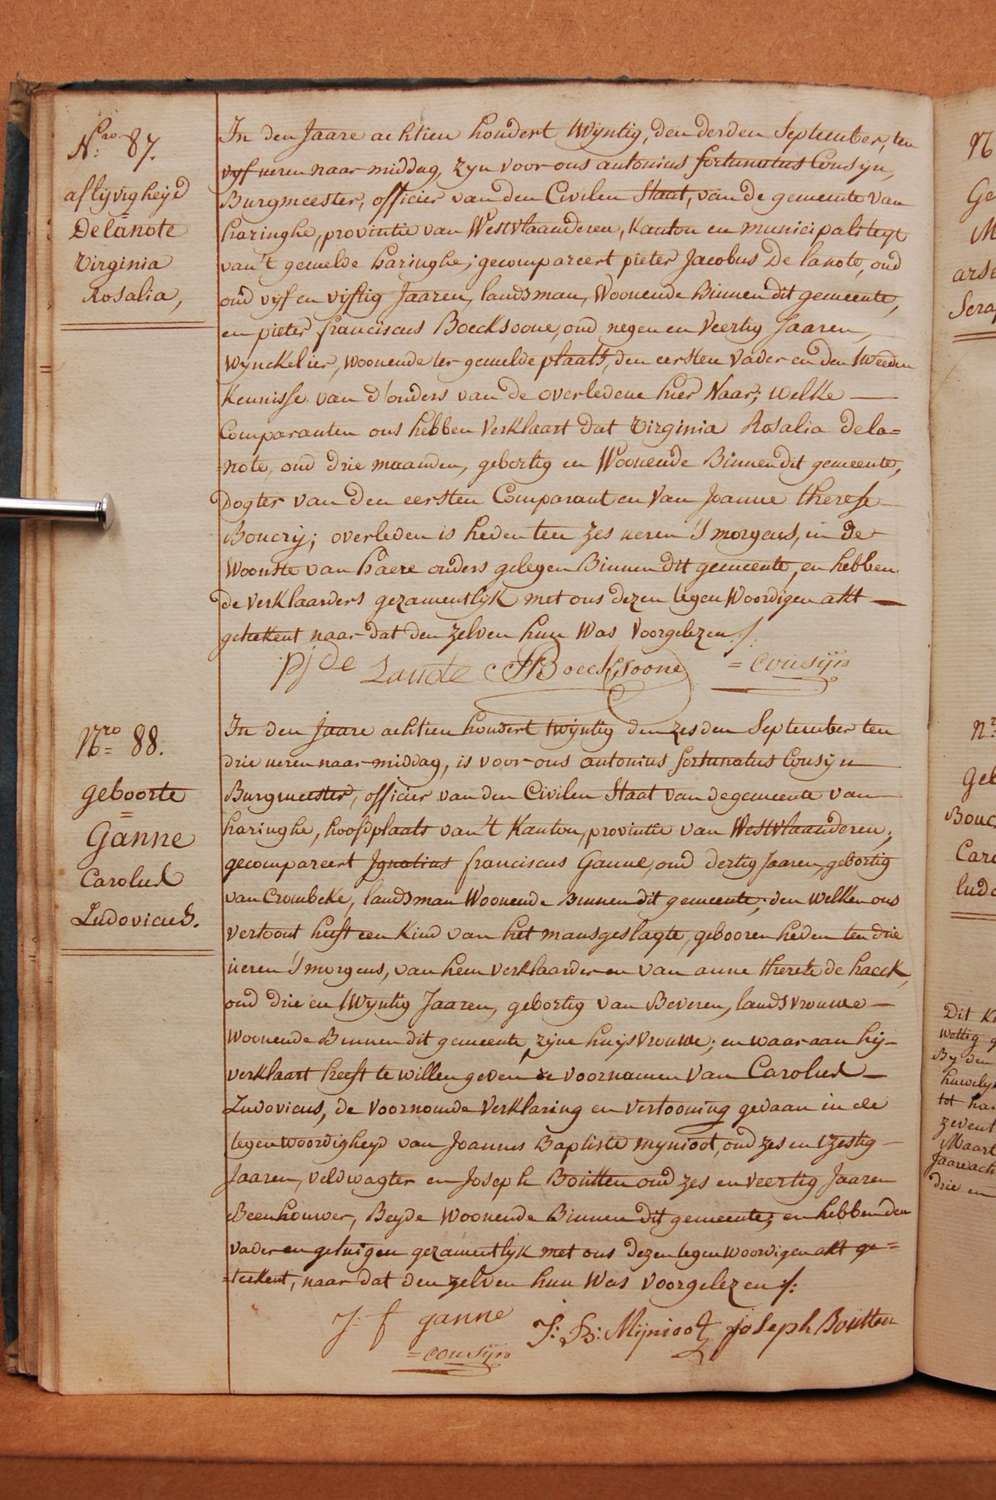 Nro 87.
aflijvigheijd
Delanote
Virginia
Rosalia,
In den Jaare achtien hondert twyntig, den derden September, ten
vyf ueren naar middag, zyn voor ons antonius fortunatus Cousyn,
Burgmeester, officier van den Civilen Staat, van de gemeente van
haringhe, provintie van Westvlaanderen, Kanton en municipaliteyt
van't gemelde haringhe; gecompareert pieter Jacobus De lanote, oud
oud vyf en vyftig Jaaren, landsman, Woonende Binnen dit gemeente,
en pieter franciscus Boecksoone, oud negen en Veertig Jaaren,
Wynckelier, woonende ter gemelde plaats, den eersten vader en den tweeden
Kennisse van d'ouders van de overledene hier Naar; welke
Comparanten ons hebben Verklaart dat Virginia Rosalia Dela=
=note, oud drie maanden, gebortig en Woonende Binnen dit gemeente,
Dogter van den eersten Comparant en Van Joanne therese
Boucry; overleden is heden ten zes ueren 's morgens, in de
Woonste van haere ouders gelegen Binnen dit gemeente, en hebben
de verklaarders gezamentlyk met ons dezen tegenwoordigen akt
geteekent naar dat den zelven hun Was voorgelezen ./.
Pj de Lanote PF Boecksoone =Cousijn
Nro 88.
geboorte
Ganne
Carolus
Ludovicus.
In den Jaare achtien hondert twyntig den zesden September ten
drie ueren naar middag, is voor ons antonius fortunatus Cousyn
Burgmeester, officier van den Civilen Staat van de gemeente van
haringhe, hoofdplaats van't Kanton, provintie van Westvlaanderen;
gecompareert Ignatius franciscus Ganne, oud dertig Jaaren, gebortig
van Crombeke, landsman Woonende Binnen dit gemeente, den Welken ons
vertoont heeft een Kind van het mansgeslagte, gebooren heden ten drie
ueren 's morgens, van hem verklaarder en van anne therese de haeck,
oud drie en twyntig Jaaren, gebortig van Beveren, landsvrouwe
Woonende Binnen dit gemeente, zijne huijsvrouwe; en waar aan hij
verklaart heeft te willen geven de voornamen van Carolus
Ludovicus, de voornoemde verklaring en vertooning gedaan in de
tegenwoordigheyd van Joannes Baptiste mynioot, oud zes en tzestig
Jaaren, veldwagter en Joseph Boutten oud zes en veertig Jaaren
Beenhouwer, Beyde Woonende Binnen dit gemeente; en hebben den
vader en getuigen gezamentlyk met ons dezen tegenwoordigen akt ge=
=teekent, naar dat den zelven hun Was voorgelezen ./.
J: f ganne J: B: Mijnioot joseph Boutten
=Cousijn